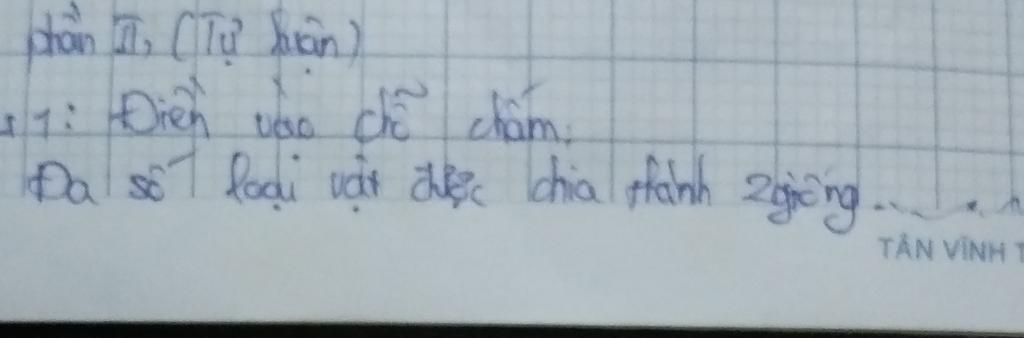 phần II, (Tự luận)
1: Điền vào chỗ chấm.
Đa số loại vật được chia thành 2 giống.......
TÂN VĨNH